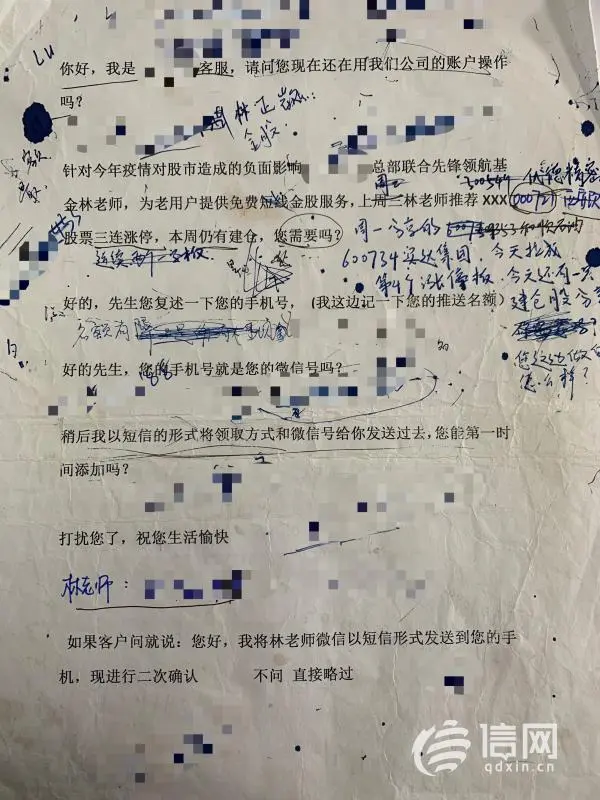 LU
你好，我是 客服，请问您现在还在用我们公司的账户操作
吗？
林正
针对今年疫情对股市造成的负面影响 总部联合先锋领航基
300549 优德精密
金林老师，为老用户提供免费短线金股服务，上周三林老师推荐 XXX
周二
000721 西安饮食
股票三连涨停，本周仍有建仓，您需要吗？
周一
600734 实达集团，今天拉成
第4个涨停板，今天还有一只
好的，先生您复述一下您的手机号，（我这边记一下您的推送名额）
名额有限
好的先生，您的手机号就是您的微信号吗？
您这边做
怎么样？
稍后我以短信的形式将领取方式和微信号给你发送过去，您能第一时
间添加吗？
打扰您了，祝您生活愉快
林老师：
如果客户问就说：您好，我将林老师微信以短信形式发送到您的手
机，现进行二次确认 不问 直接略过
信网
qdxin.cn